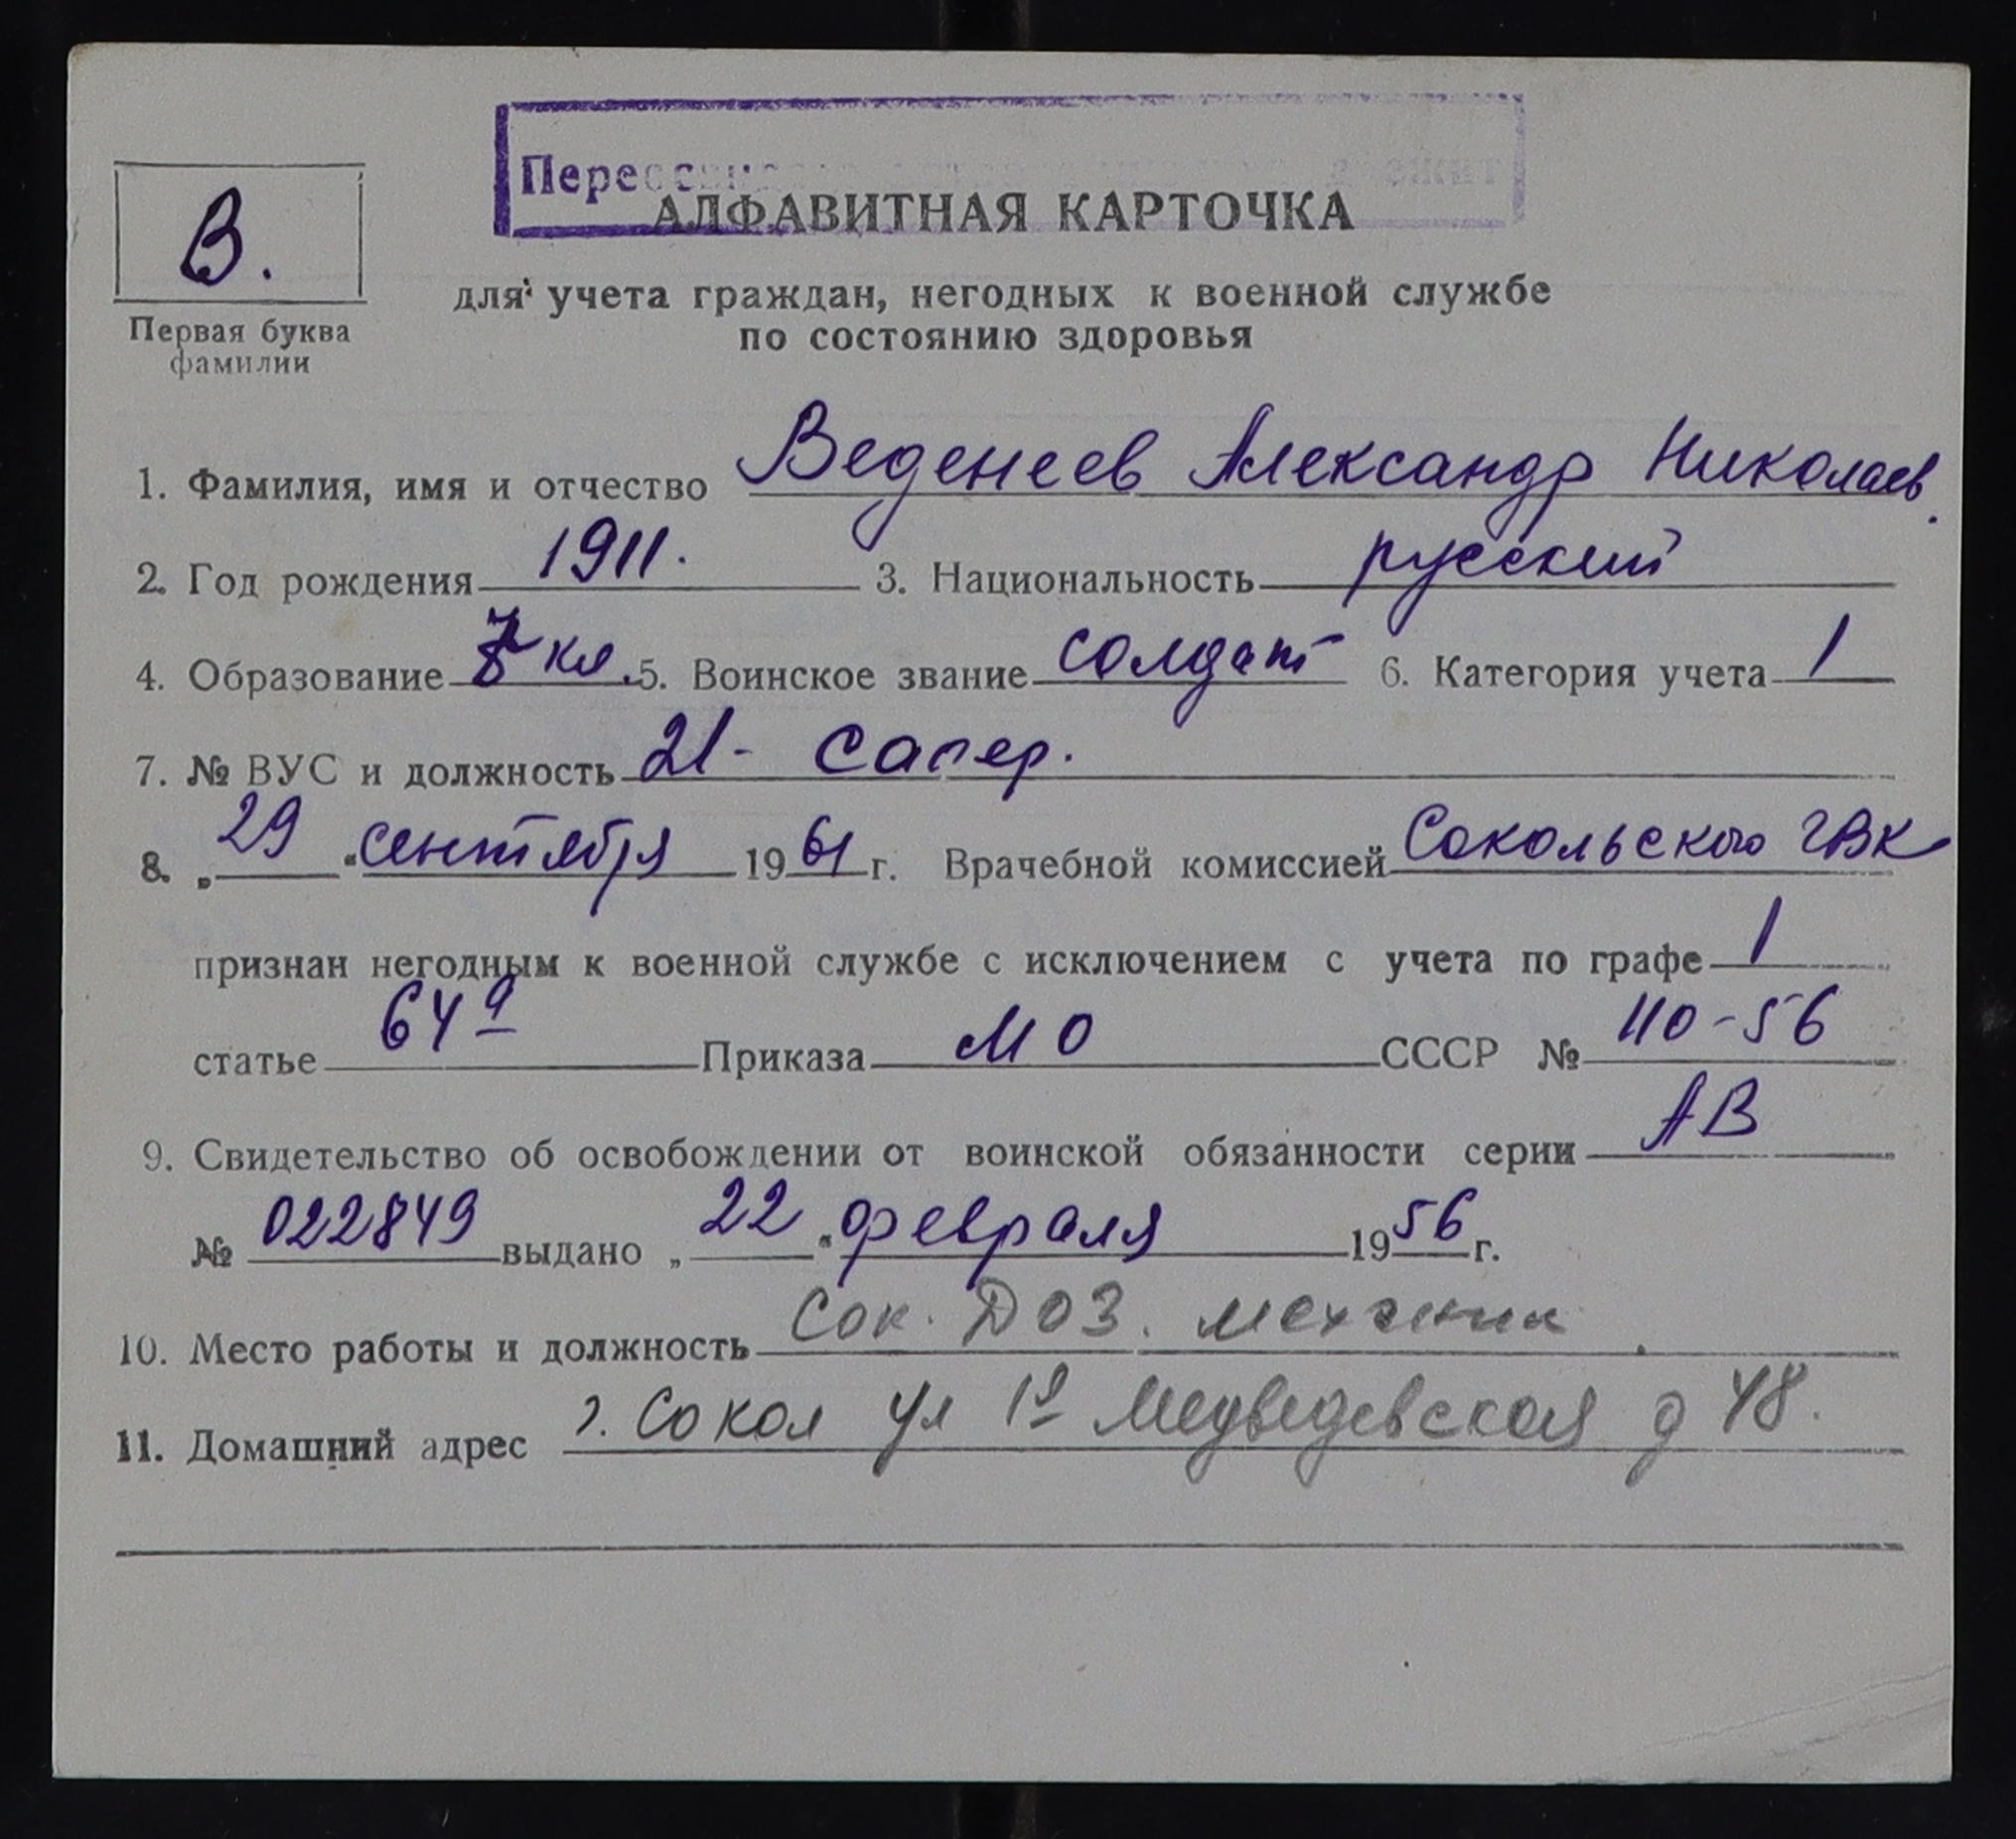 В.
Первая буква
фамилии
АЛФАВИТНАЯ КАРТОЧКА
для учета граждан, негодных к военной службе
по состоянию здоровья
1. Фамилия, имя и отчество Веденеев Александр Николаев.
2. Год рождения 1911. 3. Национальность русский
4. Образование 7 кл. 5. Воинское звание солдат 6. Категория учета 1
7. № ВУС и должность 21- сапер.
8. „29“ сентября 1961 г. Врачебной комиссией Сокольского ГВК
признан негодным к военной службе с исключением с учета по графе 1
статье 64а Приказа МО СССР № 110-56
9. Свидетельство об освобождении от воинской обязанности серии АВ
№ 022849 выдано „22“ февраля 1956 г.
10. Место работы и должность Сок. ДОЗ. механик
11. Домашний адрес г. Сокол ул 1я Медведевская д 48.